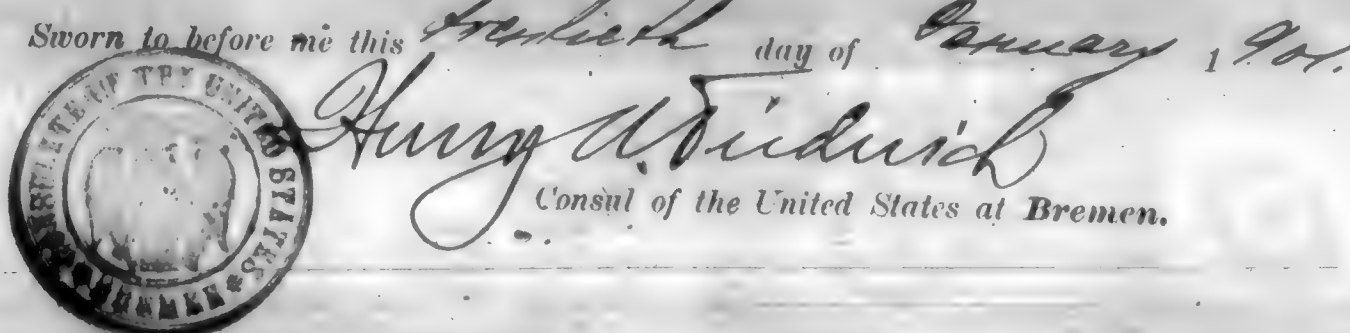 Sworn to before me this twentieth day of January 1901.
Henry W. Diederich
Consul of the United States at Bremen.
CONSULATE OF THE UNITED STATES
BREMEN